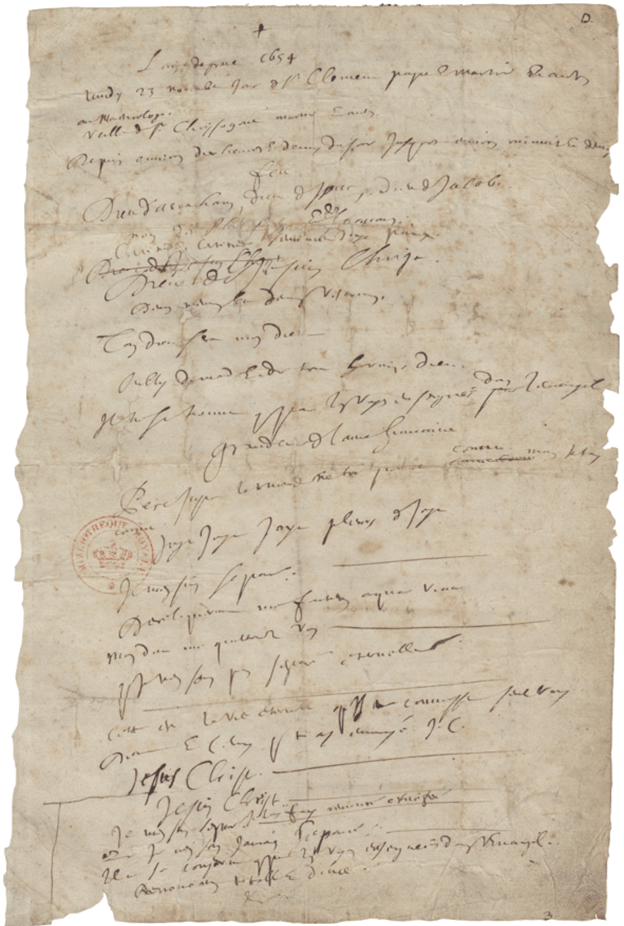 D.
L'an de grace 1654
Lundy 23 novembre jour de St Clement pape et martir et autres
au Martirologe
veille de St Chrysogone martir et autres
Depuis environ dix heures et demy du soir jusques environ minuit et demy
Feu
Dieu d'Abraham, Dieu d'Isaac, Dieu de Jacob
non des philosophes et des sçavans
certitude, certitude, sentiment, joye, paix
Dieu de Jesus Christ
Deum meum et Deum vestrum
Ton Dieu sera mon Dieu
Oubly du monde et de tout hormis Dieu
Il ne se trouve que par les voyes enseignées dans l'Evangile
Grandeur de l'ame humaine
Pere juste le monde ne t'a point connu mais je t'ay
connu
Joye Joye Joye pleurs de joye
Je m'en suis separé
Dereliquerunt me fontem aquae vivae
mon Dieu me quitterez vous
que je n'en sois pas separé eternellement
Cette est la vie eternelle qu'ils te connoissent seul vray
Dieu et celuy que tu as envoyé J.C.
Jesus Christ
Jesus Christ
je m'en suis separé je l'ay fui renoncé crucifié
que je n'en sois jamais separé
il ne se conserve que par les voyes enseignées dans l'Evangile
Renontiation totale et douce
BIBLIOTHEQUE ROYALE